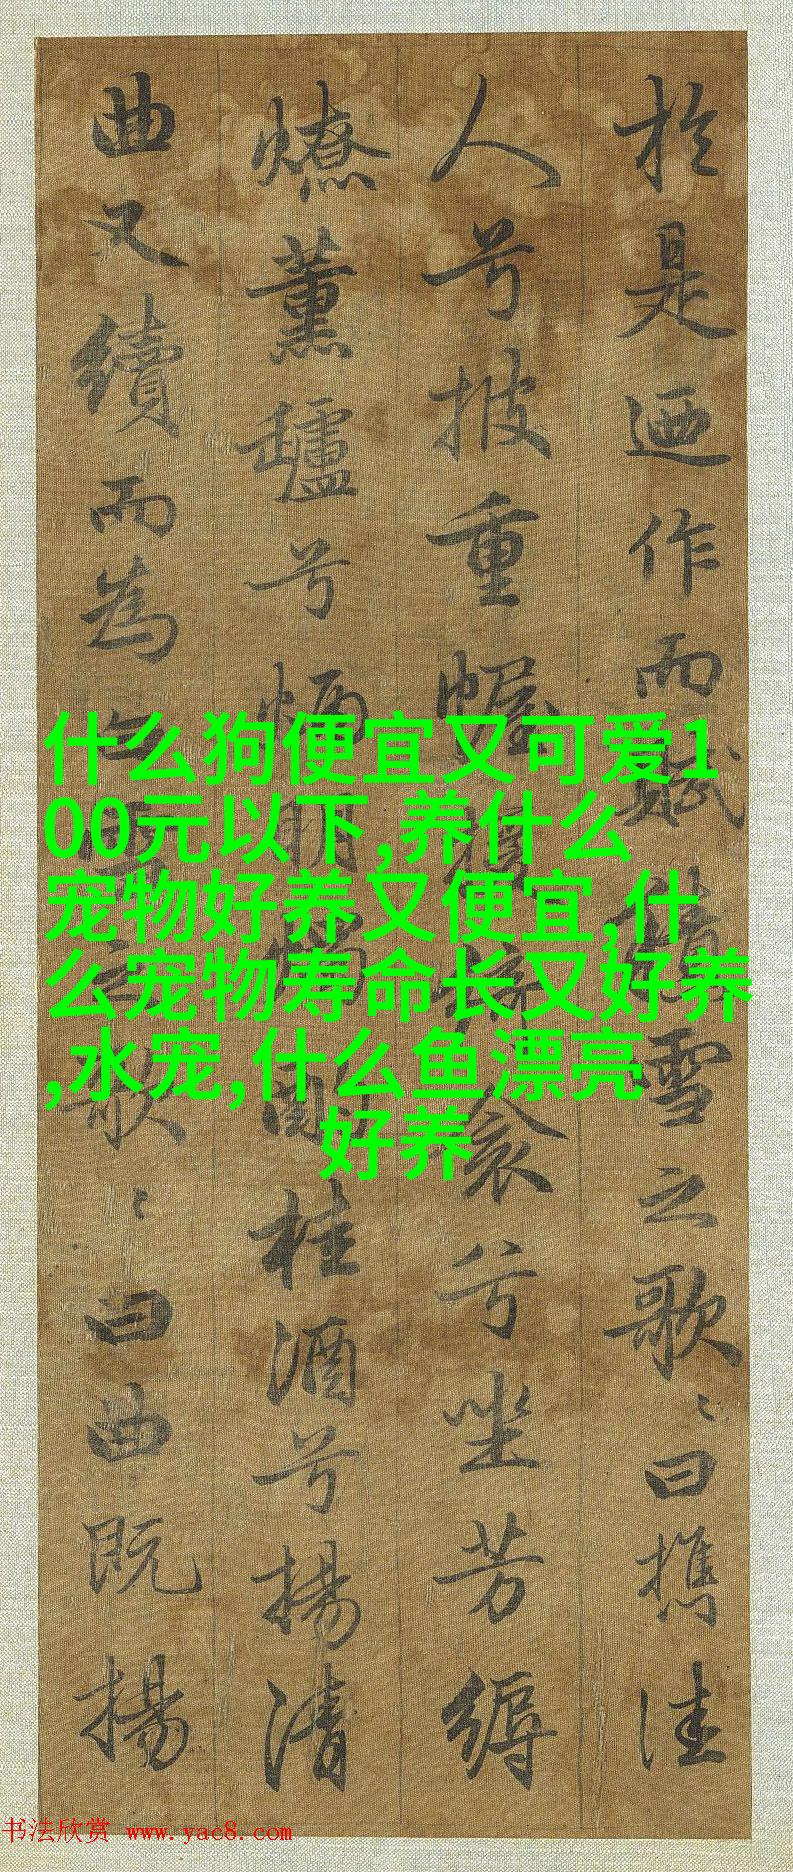 於是迺作而賦積雪之歌〻曰攜佳
人兮披重幄援綺衾兮坐芳縟
燎薰爐兮炳明燭酌桂酒兮揚清
曲又續而為白雪之歌〻曰曲既揚
什么狗便宜又可爱1
00元以下,养什么
宠物好养又便宜,什
么宠物寿命长又好养
,水宠,什么鱼漂亮
好养
书法欣赏 www.yac8.com